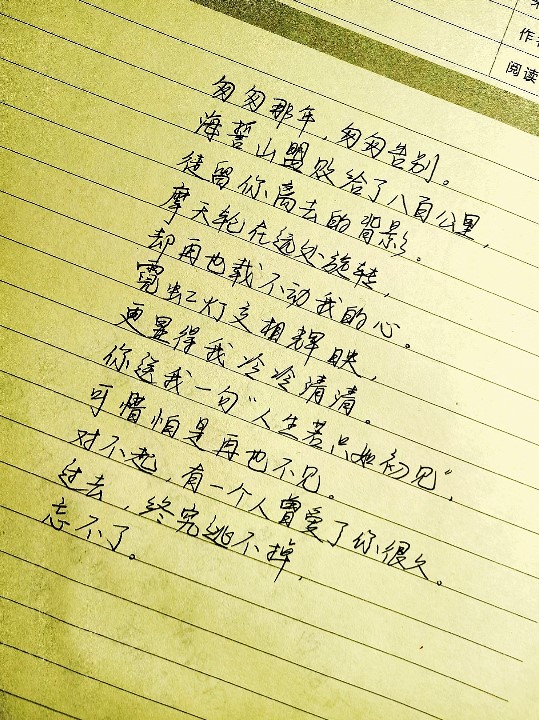 作者
阅读
匆匆那年，匆匆告别。
海誓山盟败给了八百公里，
徒留你离去的背影。
摩天轮在远处旋转，
却再也载不动我的心。
霓虹灯交相辉映，
更显得我冷冷清清。
你送我一句“人生若只如初见”，
可惜怕是再也不见。
对不起，有一个人曾爱了你很久。
过去，终究逃不掉，
忘不了。